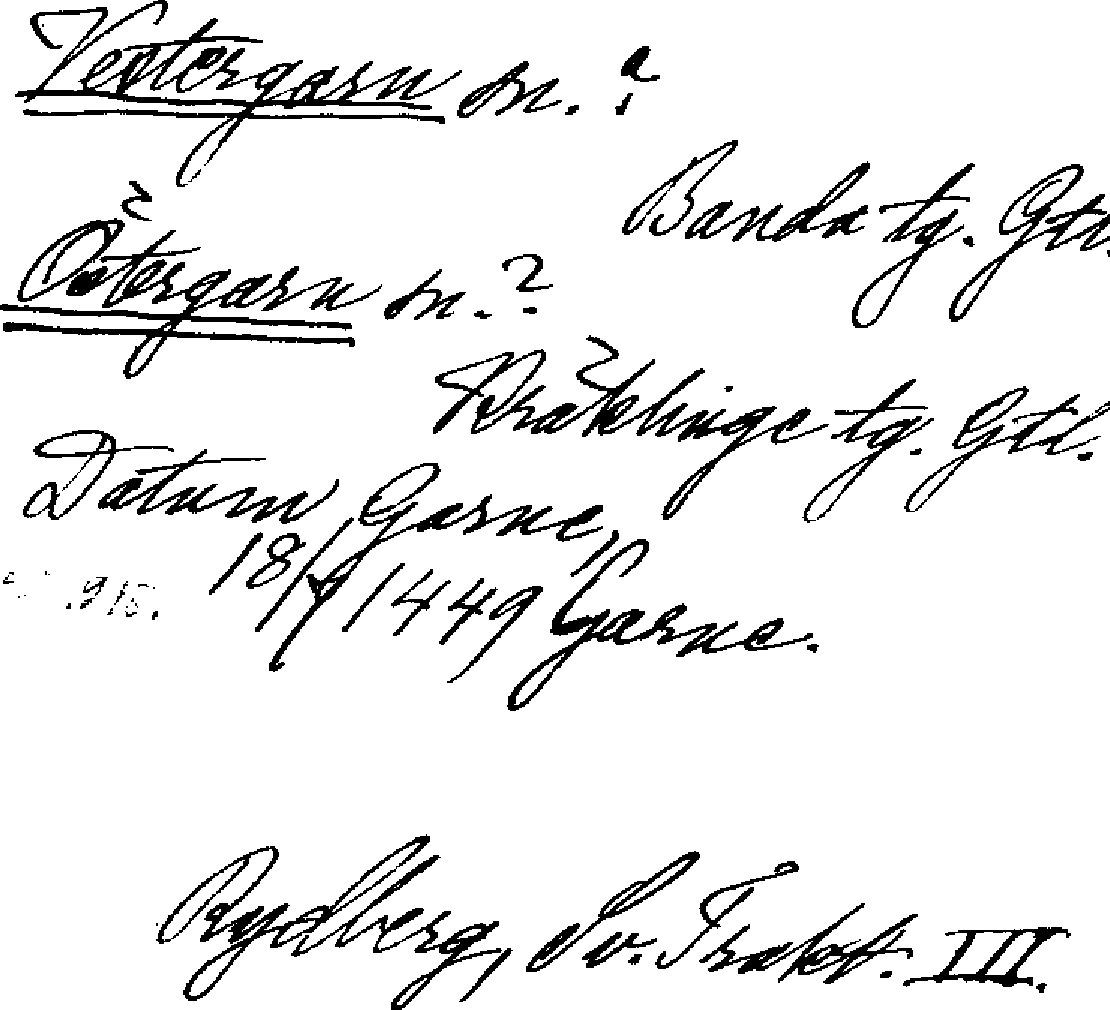 Vestergarn sn. ?
Banda tg. Gtl.
Östergarn sn. ?
Kräklinge tg. Gtl.
Datum Garne,
18/9 1449 Garne.
Rydberg, Sv. Trakt. III.